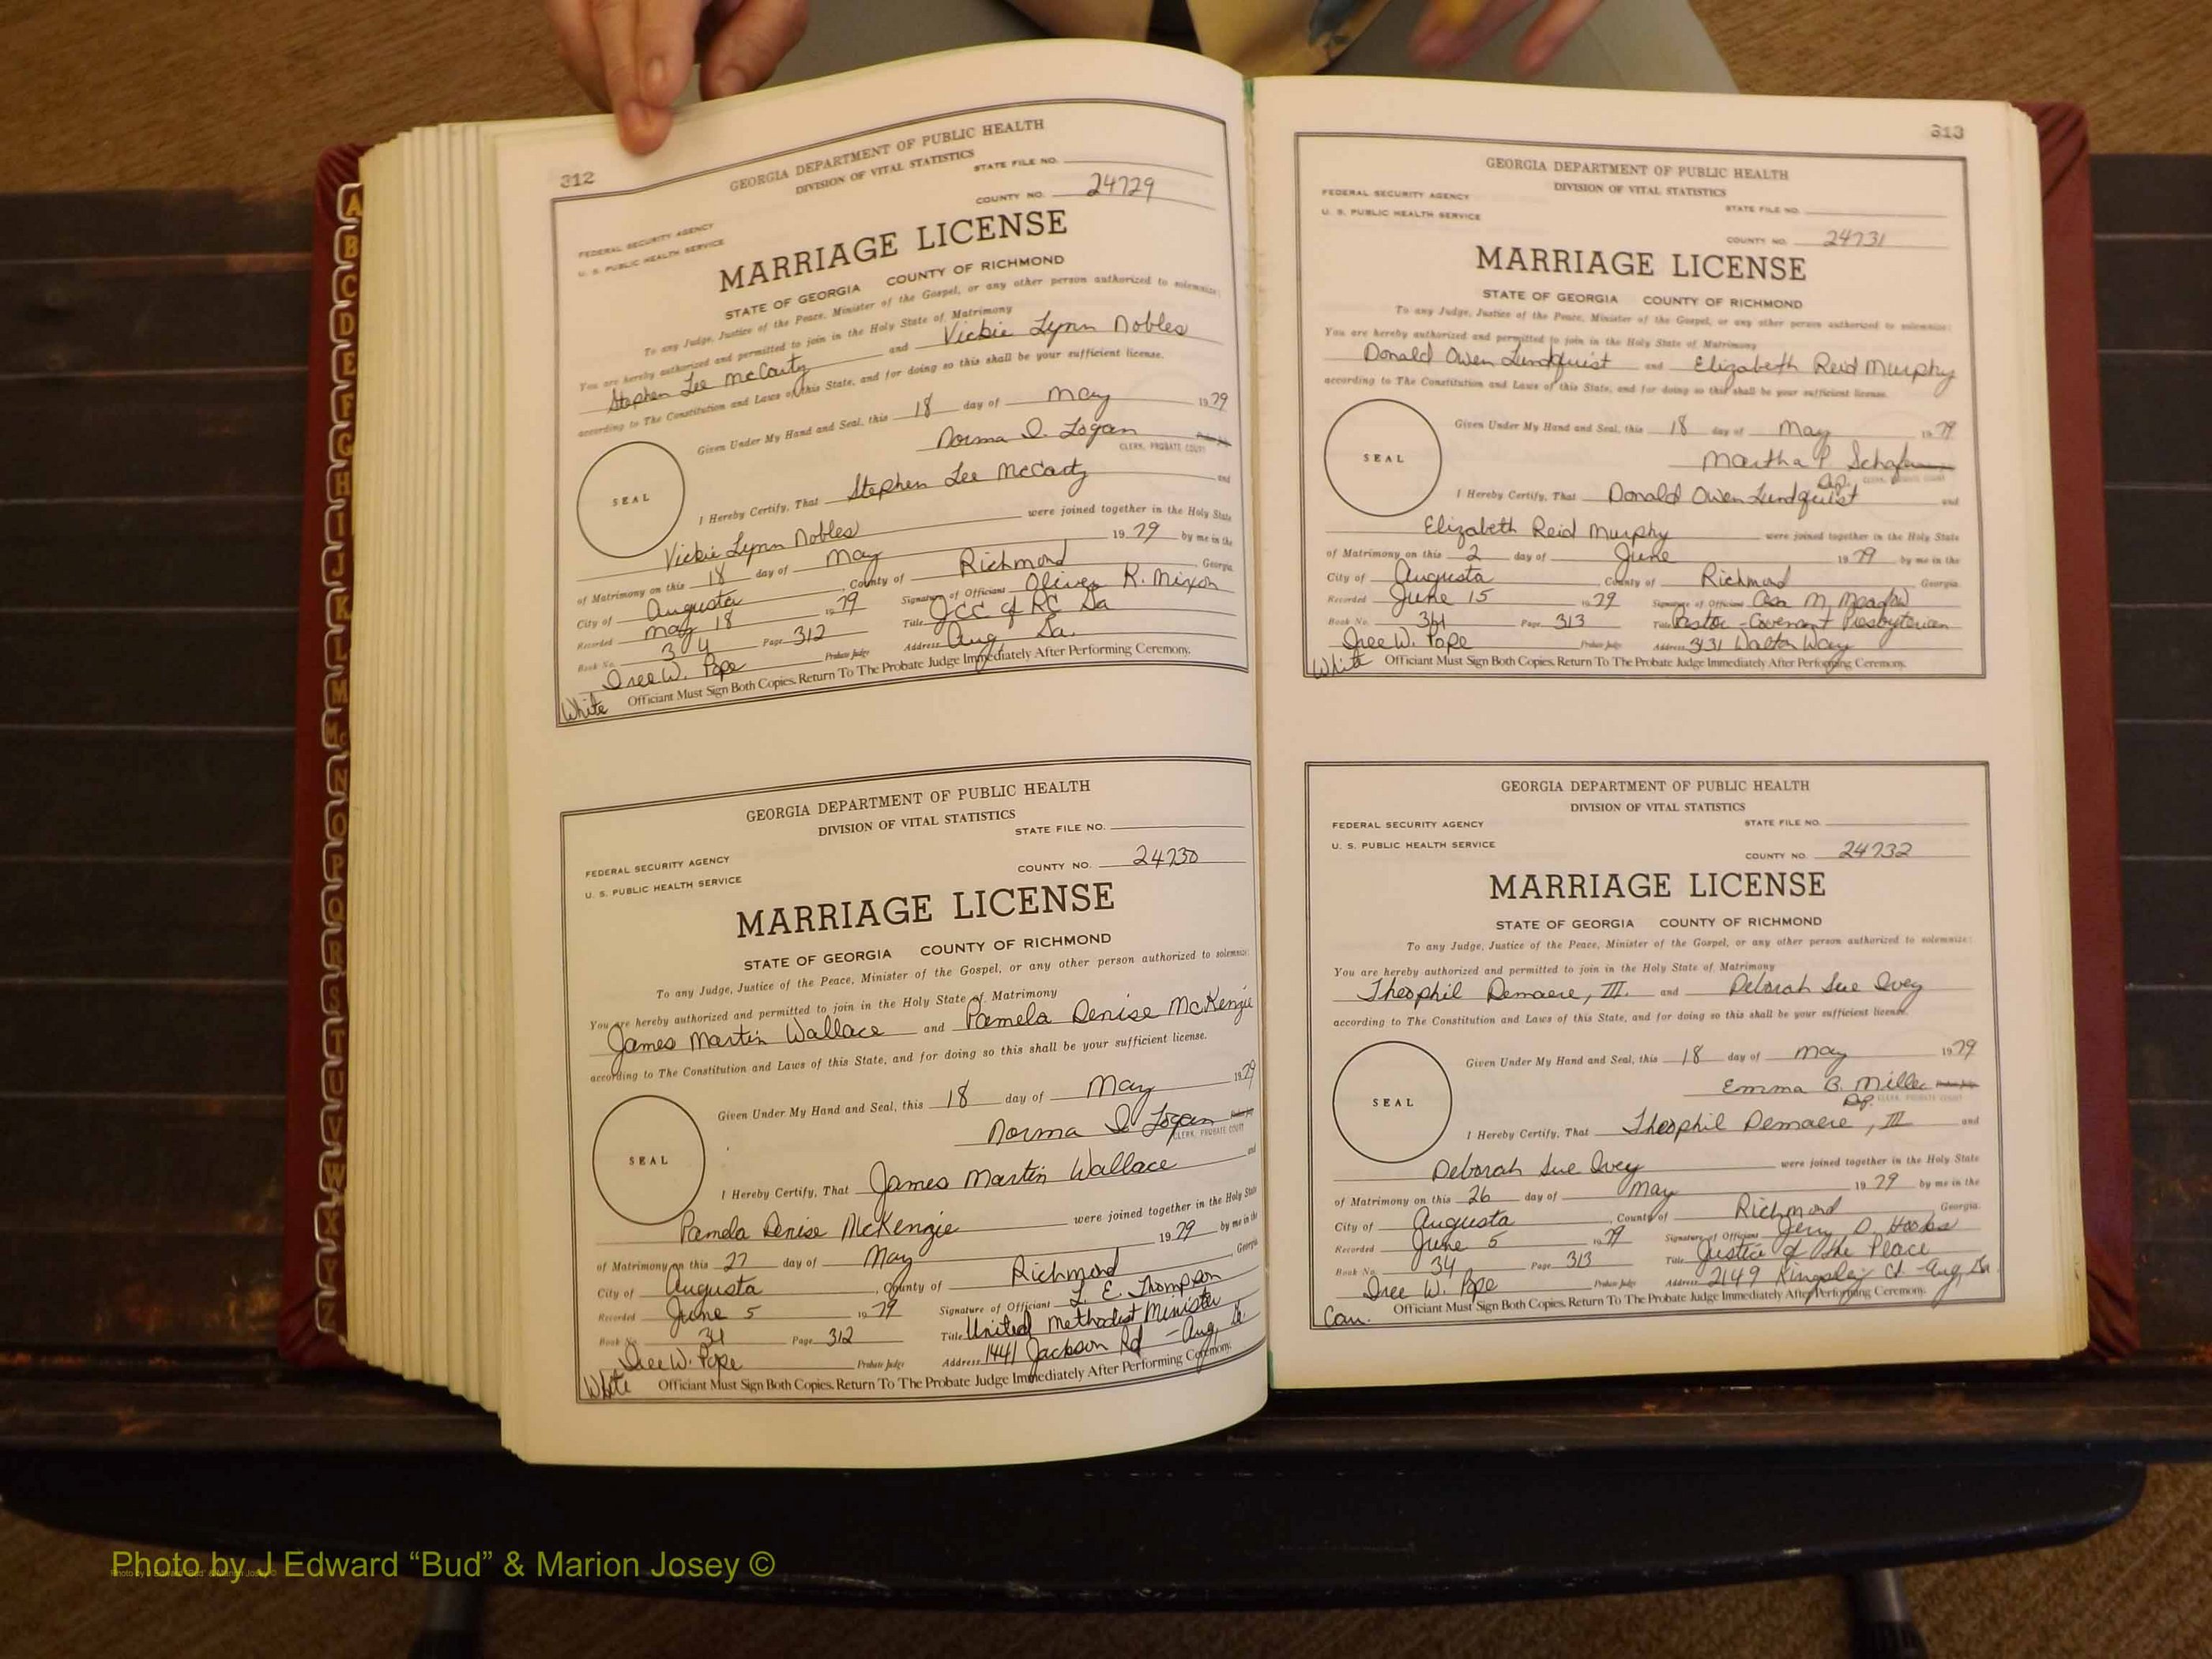 A
B
C
D
E
F
G
H
I
J
K
L
M
Mc
N
O
P
Q
R
S
T
U
V
W
X
Y
Z
312
GEORGIA DEPARTMENT OF PUBLIC HEALTH
DIVISION OF VITAL STATISTICS
STATE FILE NO.
COUNTY NO. 24729
FEDERAL SECURITY AGENCY
U. S. PUBLIC HEALTH SERVICE
MARRIAGE LICENSE
STATE OF GEORGIA COUNTY OF RICHMOND
To any Judge, Justice of the Peace, Minister of the Gospel, or any other person authorized to solemnize:
You are hereby authorized and permitted to join in the Holy State of Matrimony
Stephen Lee McCarty and Vickie Lynn Nobles
according to The Constitution and Laws of this State, and for doing so this shall be your sufficient license.
Given Under My Hand and Seal, this 18 day of May 1979
Norma D. Logan
CLERK, PROBATE COURT
SEAL
I Hereby Certify, That Stephen Lee McCarty and
Vickie Lynn Nobles were joined together in the Holy State
of Matrimony on this 18 day of May 1979 by me in the
City of Augusta, County of Richmond Georgia
Recorded May 18 1979 Signature of Officiant Oliver K. Mixon
Book No. 34 Page 312 Title JCC of RC Ga
Iree W. Pope Probate Judge Address Aug Ga.
White Officiant Must Sign Both Copies. Return To The Probate Judge Immediately After Performing Ceremony.
GEORGIA DEPARTMENT OF PUBLIC HEALTH
DIVISION OF VITAL STATISTICS
STATE FILE NO.
COUNTY NO. 24730
FEDERAL SECURITY AGENCY
U. S. PUBLIC HEALTH SERVICE
MARRIAGE LICENSE
STATE OF GEORGIA COUNTY OF RICHMOND
To any Judge, Justice of the Peace, Minister of the Gospel, or any other person authorized to solemnize:
You are hereby authorized and permitted to join in the Holy State of Matrimony
James Martin Wallace and Pamela Denise McKenzie
according to The Constitution and Laws of this State, and for doing so this shall be your sufficient license.
Given Under My Hand and Seal, this 18 day of May 1979
Norma D Logan
CLERK, PROBATE COURT
SEAL
I Hereby Certify, That James Martin Wallace and
Pamela Denise McKenzie were joined together in the Holy State
of Matrimony on this 27 day of May 1979 by me in the
City of Augusta, County of Richmond Georgia
Recorded June 5 1979 Signature of Officiant L. E. Thompson
Book No. 34 Page 312 Title United Methodist Minister
Iree W. Pope Probate Judge Address 1441 Jackson Rd - Aug, Ga
White Officiant Must Sign Both Copies. Return To The Probate Judge Immediately After Performing Ceremony.
313
GEORGIA DEPARTMENT OF PUBLIC HEALTH
DIVISION OF VITAL STATISTICS
FEDERAL SECURITY AGENCY
U. S. PUBLIC HEALTH SERVICE
STATE FILE NO.
COUNTY NO. 24731
MARRIAGE LICENSE
STATE OF GEORGIA COUNTY OF RICHMOND
To any Judge, Justice of the Peace, Minister of the Gospel, or any other person authorized to solemnize:
You are hereby authorized and permitted to join in the Holy State of Matrimony
Donald Owen Lundquist and Elizabeth Reid Murphy
according to The Constitution and Laws of this State, and for doing so this shall be your sufficient license.
Given Under My Hand and Seal, this 18 day of May 1979
Martha P
Dep. CLERK, PROBATE COURT
SEAL
I Hereby Certify, That Donald Owen Lundquist and
Elizabeth Reid Murphy were joined together in the Holy State
of Matrimony on this 2 day of June 1979 by me in the
City of Augusta, County of Richmond Georgia
Recorded June 15 1979 Signature of Officiant M,
Book No. 34 Page 313 Title Pastor - Covenant Presbyterian
Iree W. Pope Probate Judge Address 3131 Walton Way
White Officiant Must Sign Both Copies. Return To The Probate Judge Immediately After Performing Ceremony.
GEORGIA DEPARTMENT OF PUBLIC HEALTH
DIVISION OF VITAL STATISTICS
FEDERAL SECURITY AGENCY
STATE FILE NO.
U. S. PUBLIC HEALTH SERVICE
COUNTY NO. 24732
MARRIAGE LICENSE
STATE OF GEORGIA COUNTY OF RICHMOND
To any Judge, Justice of the Peace, Minister of the Gospel, or any other person authorized to solemnize:
You are hereby authorized and permitted to join in the Holy State of Matrimony
Theophil Demaere, III. and Deborah Sue Ivey
according to The Constitution and Laws of this State, and for doing so this shall be your sufficient license.
Given Under My Hand and Seal, this 18 day of May 1979
Emma B. Miller
Dep. CLERK, PROBATE COURT
SEAL
I Hereby Certify, That Theophil Demaere, III and
Deborah Sue Ivey were joined together in the Holy State
of Matrimony on this 26 day of May 1979 by me in the
City of Augusta, County of Richmond Georgia
Recorded June 5 1979 Signature of Officiant Jerry D. Hobbs
Book No. 34 Page 313 Title Justice of the Peace
Iree W. Pope Probate Judge Address 2149 Kingsley Ct - Aug, Ga
Cau. Officiant Must Sign Both Copies. Return To The Probate Judge Immediately After Performing Ceremony.
Photo by J Edward “Bud” & Marion Josey ©